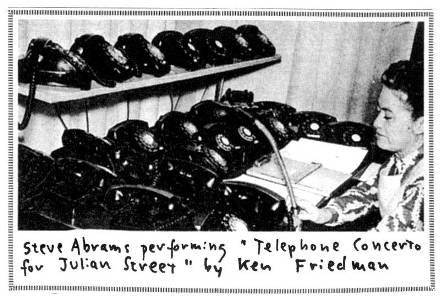 Steve Abrams performing "Telephone Concerto
for Julian Street" by Ken Friedman